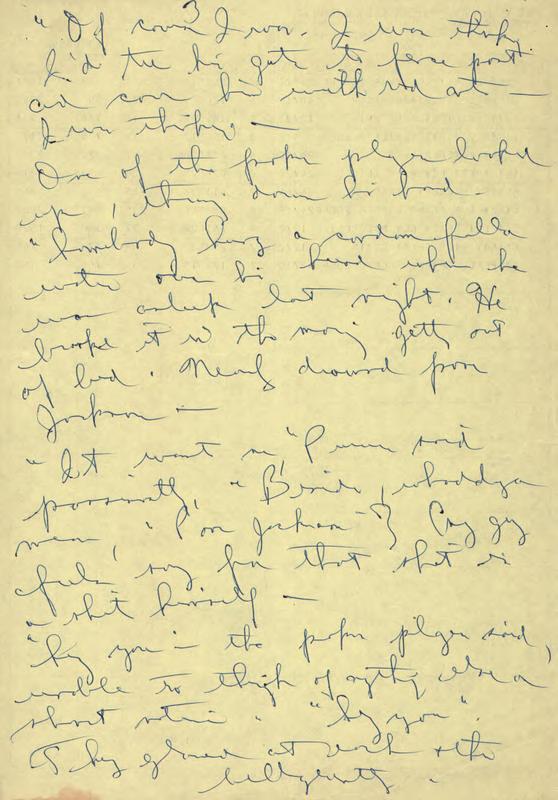 3
"Of course I was. I was thinking
I'd tie his guts to fence post
and cover him with red ants —
I was thinking —
One of the poker players looked
up, throwing down his hand —
"Somebody hung a condom fulla
water over his head when he
was asleep last night. He
broke it in the morning getting out
of bed. Nearly drowned poor
Jackson —
"It wasn't me" said
passionately, "Besides, whaddya
mean, "Poor Jackson"? Any guy
feels sorry for that shit is
a shit himself —
you — the poker player said,
unable to think of anything else on
short notice. " you".
They glared at each other
belligerently.